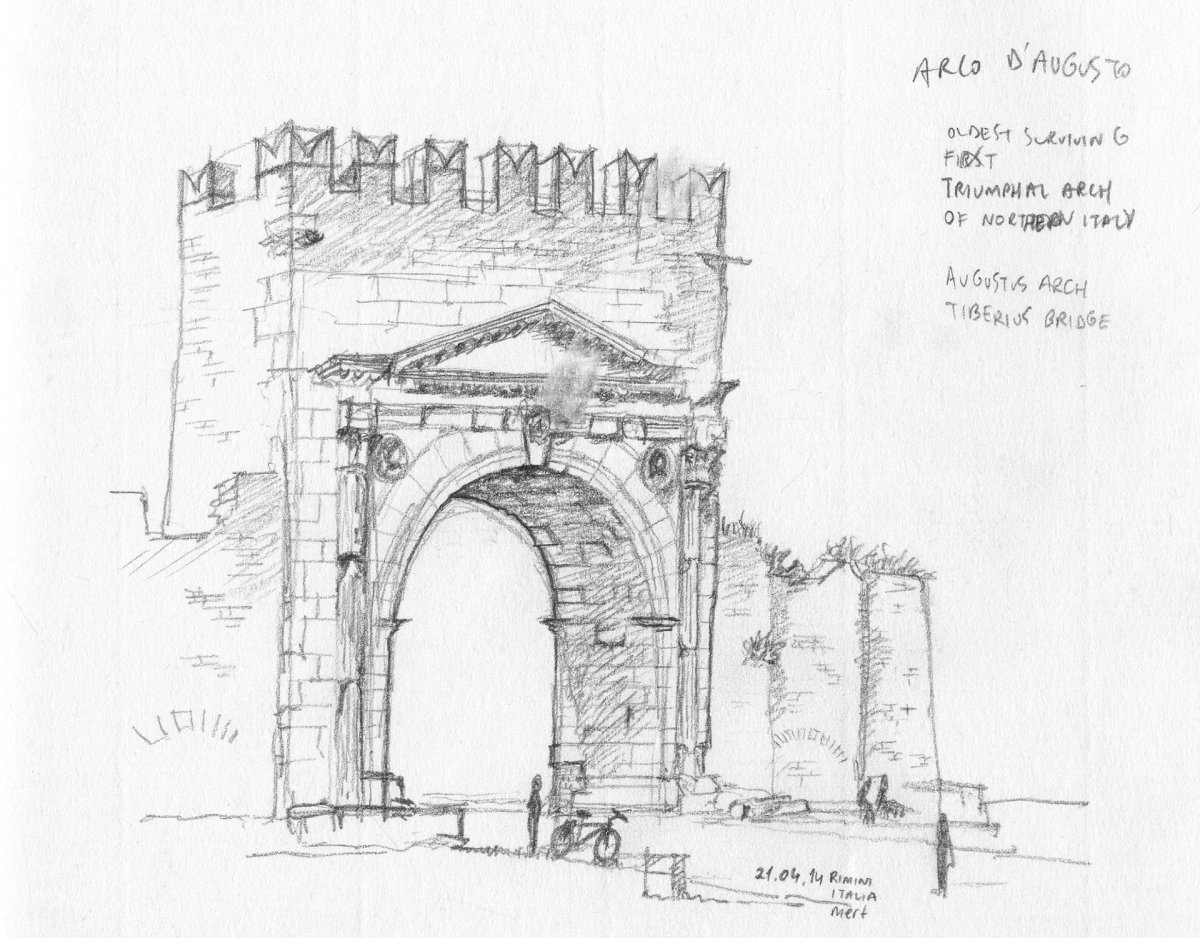 ARCO D'AUGUSTO
OLDEST SURVIVING
FIRST
TRIUMPHAL ARCH
OF NORTHERN ITALY
AUGUSTUS ARCH
TIBERIUS BRIDGE
21.04.14 RIMINI
ITALIA
Mert